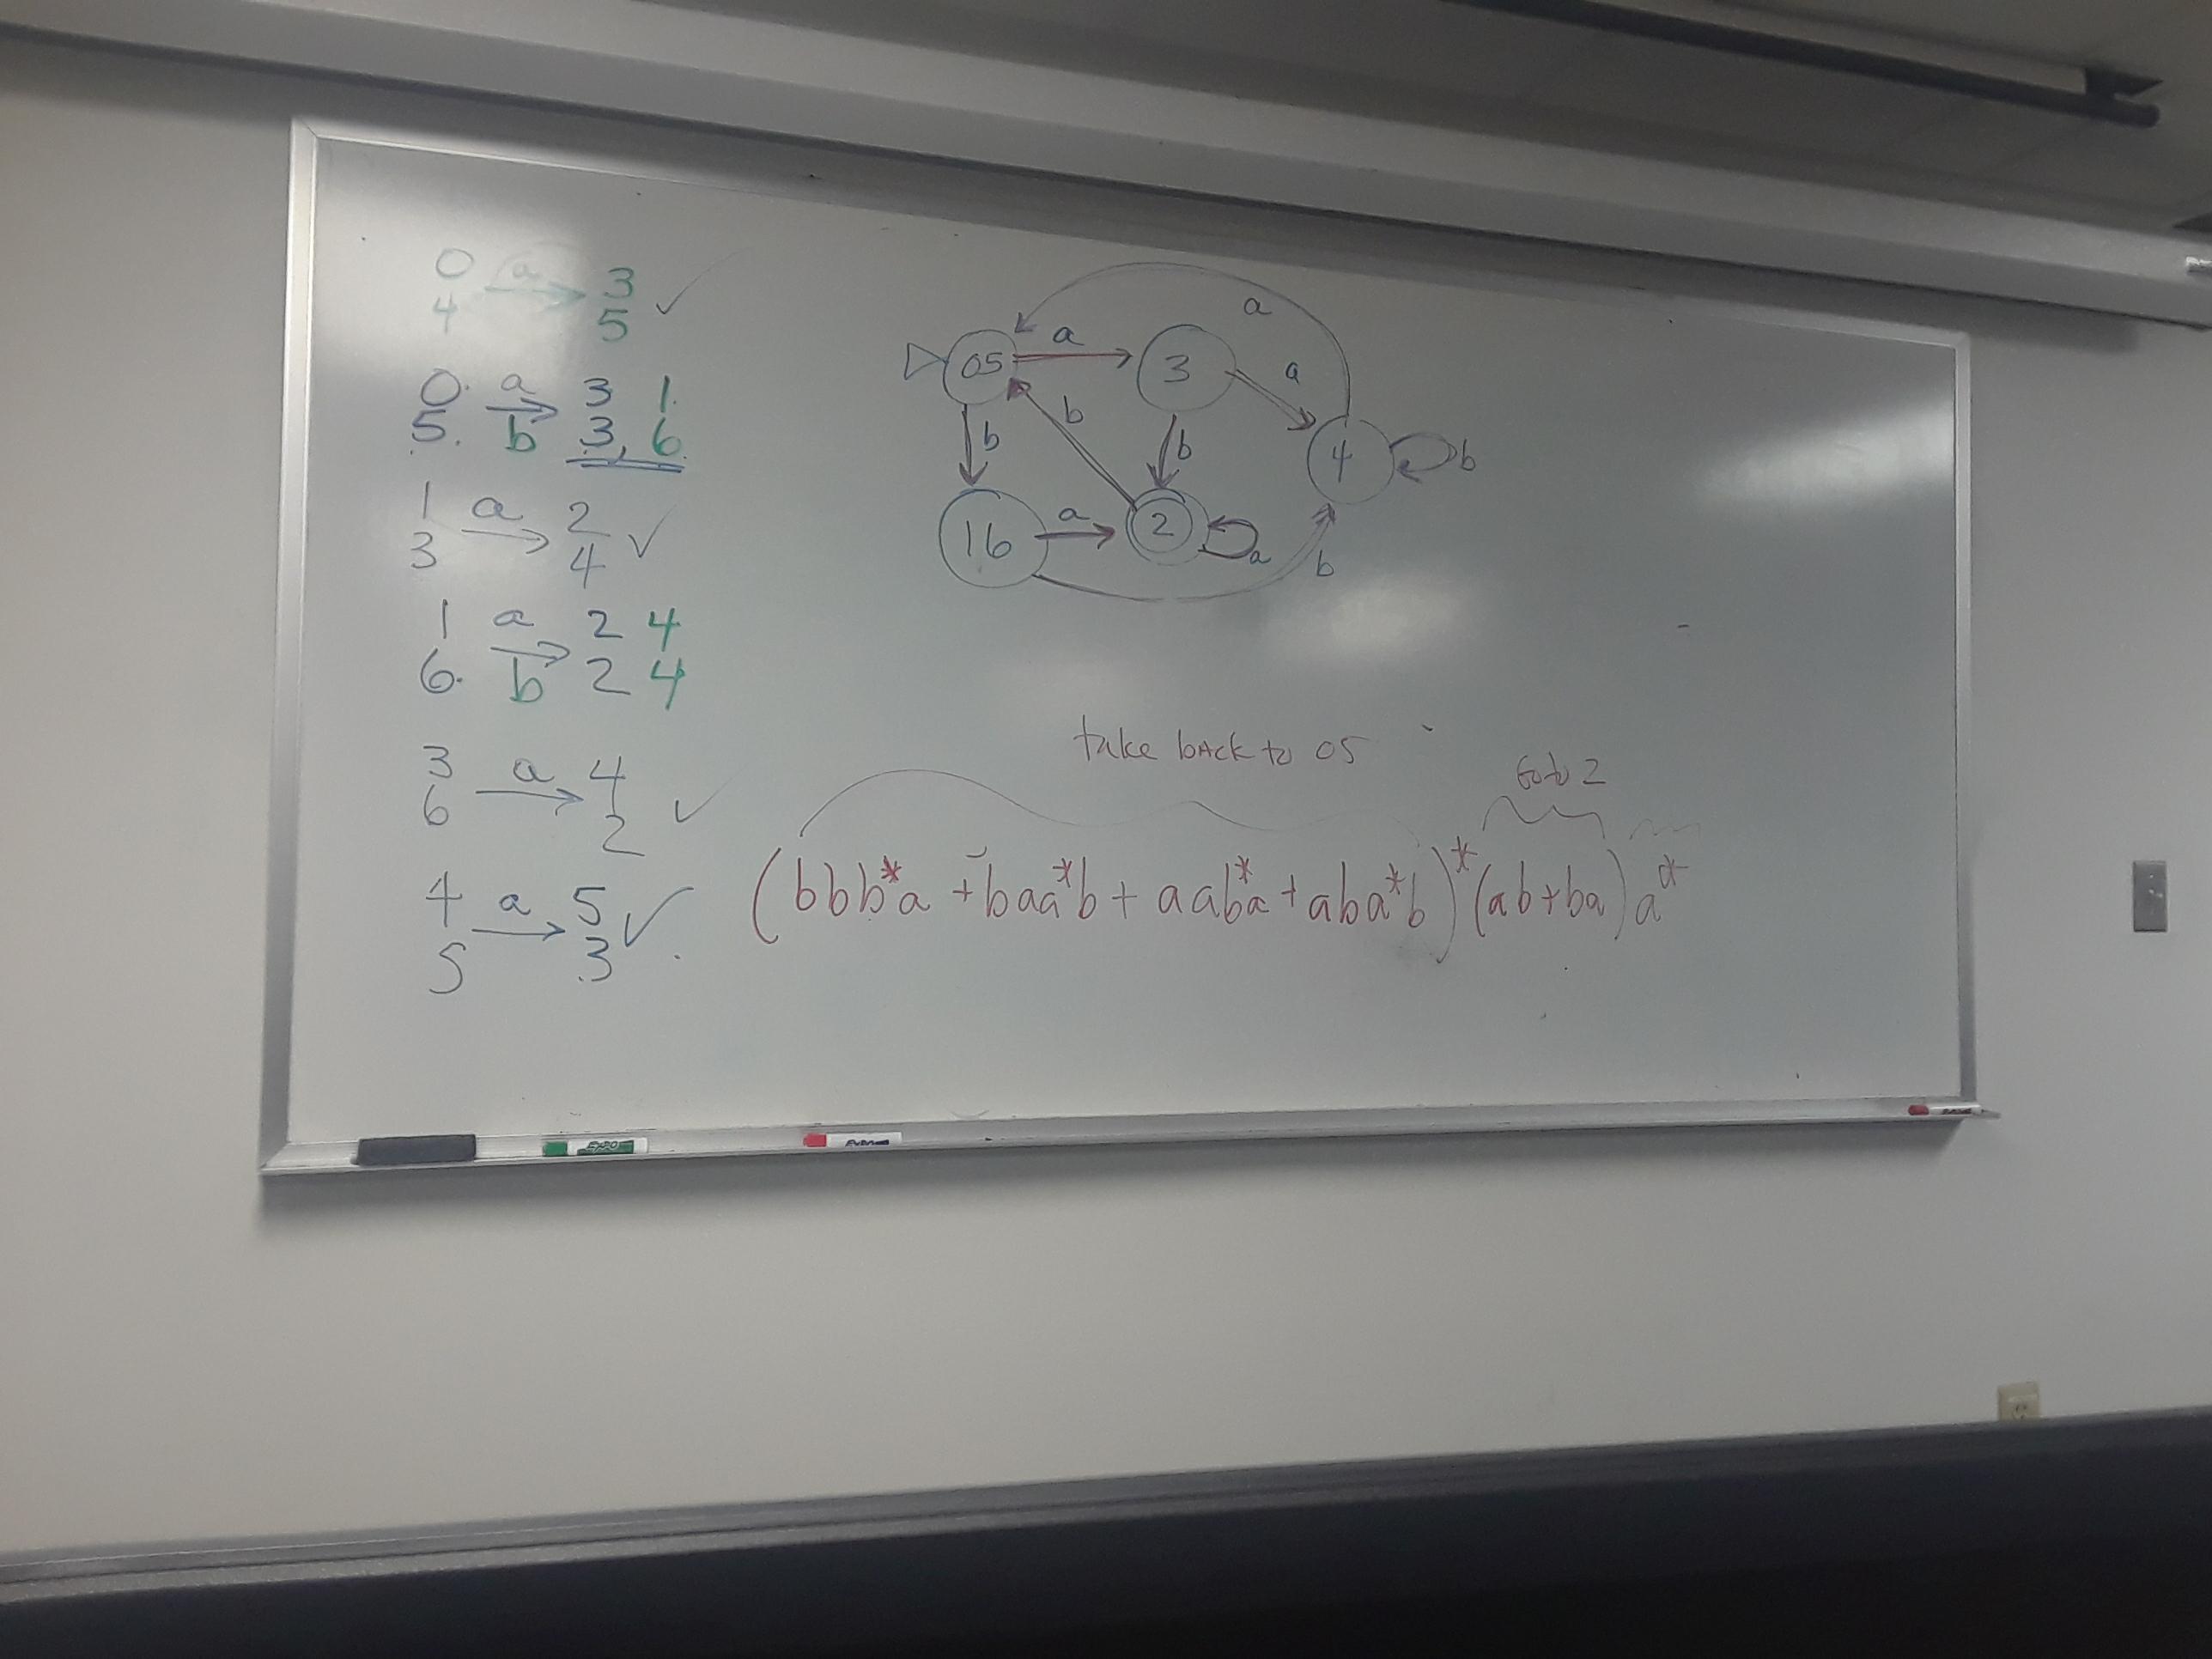 0 a 3
4 5 ✓
0. a 3 1.
5. b 3, 6.
1 a 2
3 4 ✓
1 a 2 4
6. b 2 4
3 a 4
6 2 ✓
4 a 5
5 3 ✓
a
05 a 3 a
b b b 4 b
16 a 2 a b
take bAck to 05
Go to 2
(bbb*a + baa*b + aab*a + aba*b)*(ab+ba)a*
EXPO